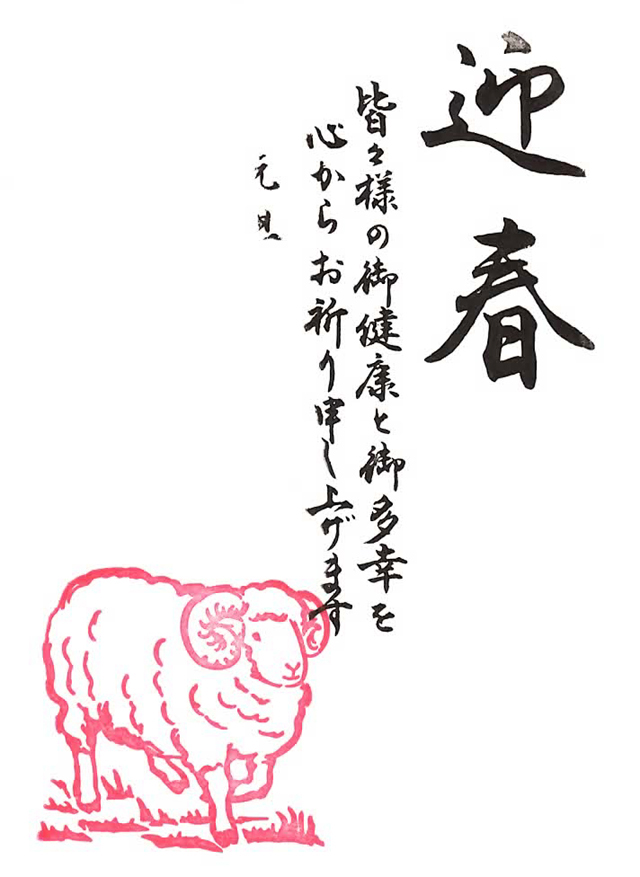 迎春
皆々様の御健康と御多幸を
心からお祈り申し上げます
元旦